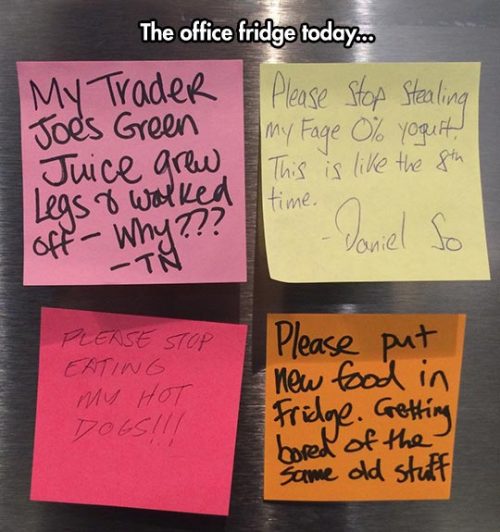 The office fridge today...
My Trader
Joe's Green
Juice grew
Legs & walked
off - Why???
- TN
Please Stop Stealing
my Fage 0% yogurt!
This is like the 8th
time.
- Daniel So
PLEASE STOP
EATING
MY HOT
DOGS!!!
Please put
new food in
Fridge. Getting
bored of the
same old stuff